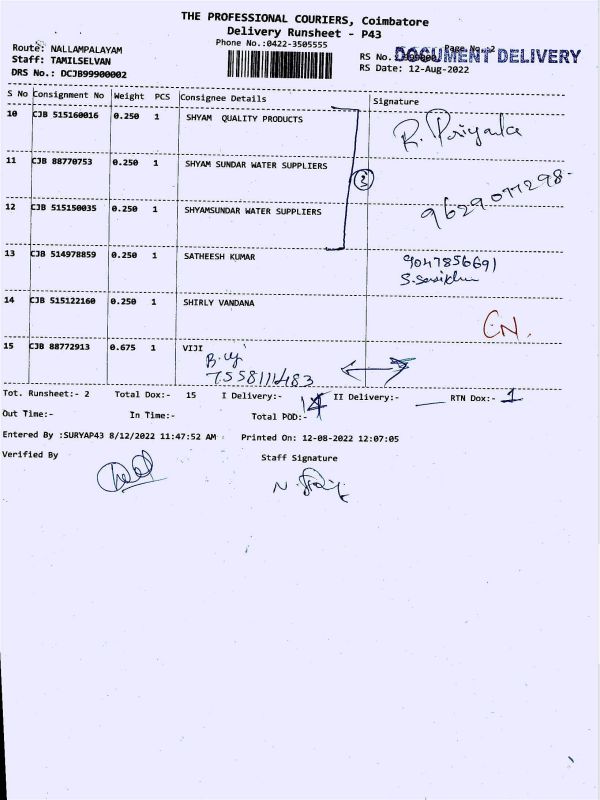 THE PROFESSIONAL COURIERS, Coimbatore
Delivery Runsheet - P43
Phone No.:0422-3505555
Page No. 2
Route: NALLAMPALAYAM
RS No.:
DOCUMENT DELIVERY
Staff: TAMILSELVAN
RS Date: 12-Aug-2022
DRS No.: DCJB99900002
S No Consignment No Weight PCS Consignee Details Signature
10 CJB 515160016 0.250 1 SHYAM QUALITY PRODUCTS R. Priyanka
11 CJB 88770753 0.250 1 SHYAM SUNDAR WATER SUPPLIERS
3
12 CJB 515150035 0.250 1 SHYAMSUNDAR WATER SUPPLIERS 9629077298
13 CJB 514978859 0.250 1 SATHEESH KUMAR 9047856691
14 CJB 515122160 0.250 1 SHIRLY VANDANA CN.
15 CJB 88772913 0.675 1 VIJI
7558111483
Tot. Runsheet:- 2 Total Dox:- 15 I Delivery:- 14 II Delivery:- RTN Dox:- 1
Out Time:- In Time:- Total POD:-
Entered By :SURYAP43 8/12/2022 11:47:52 AM Printed On: 12-08-2022 12:07:05
Verified By Staff Signature